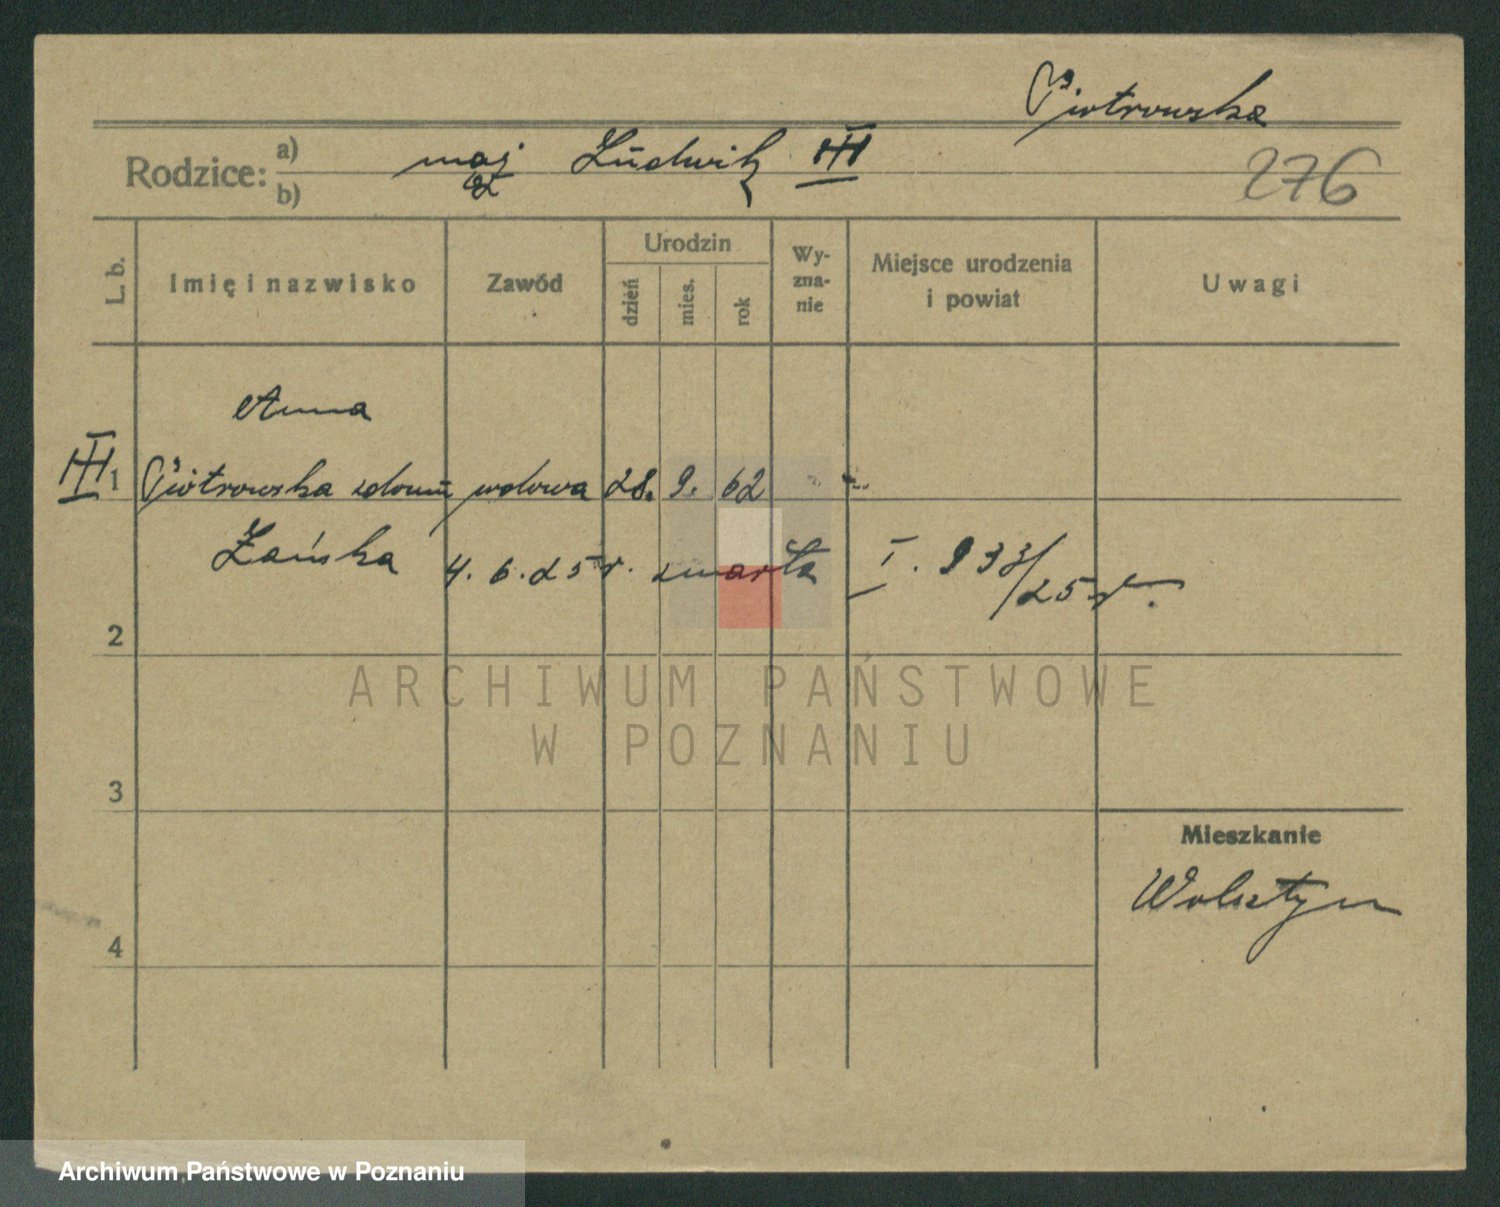 Piotrowska
Rodzice: a) b)
mąż Ludwik III
276
L. b.
Imię i nazwisko
Zawód
Urodzin
dzień
mies.
rok
Wy-
zna-
nie
Miejsce urodzenia
i powiat
Uwagi
Anna
III 1 Piotrowska zdomu wdowa 28. 9. 62
Żańska 4. 6. 25 r. zmarła I. 933/25 r.
2
ARCHIWUM PAŃSTWOWE
W POZNANIU
3
Mieszkanie
Wolsztyn
4
Archiwum Państwowe w Poznaniu